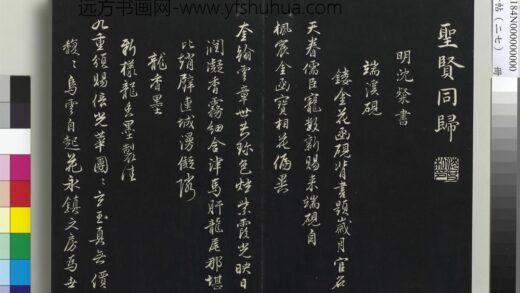 远方书画网-www.yfshuhua.com
184N000000000
帖(二七)
聖賢同歸
明沈粲書
端溪硯
鏤金花函硯背書題歲月官名
天眷儒臣寵數新賜来端硯自
楓宸金函寶相花偏異
奎翰雲章世共珍色燦紫霞光映日
潤凝香霧細含津馬肝龍尾那堪
比縱壁連城漫儗隣
龍香墨
新樣龍香墨製佳
九重頒賜倍光華圓〻玄玉真無價
馥〻烏雲自起花永鎮文房為世